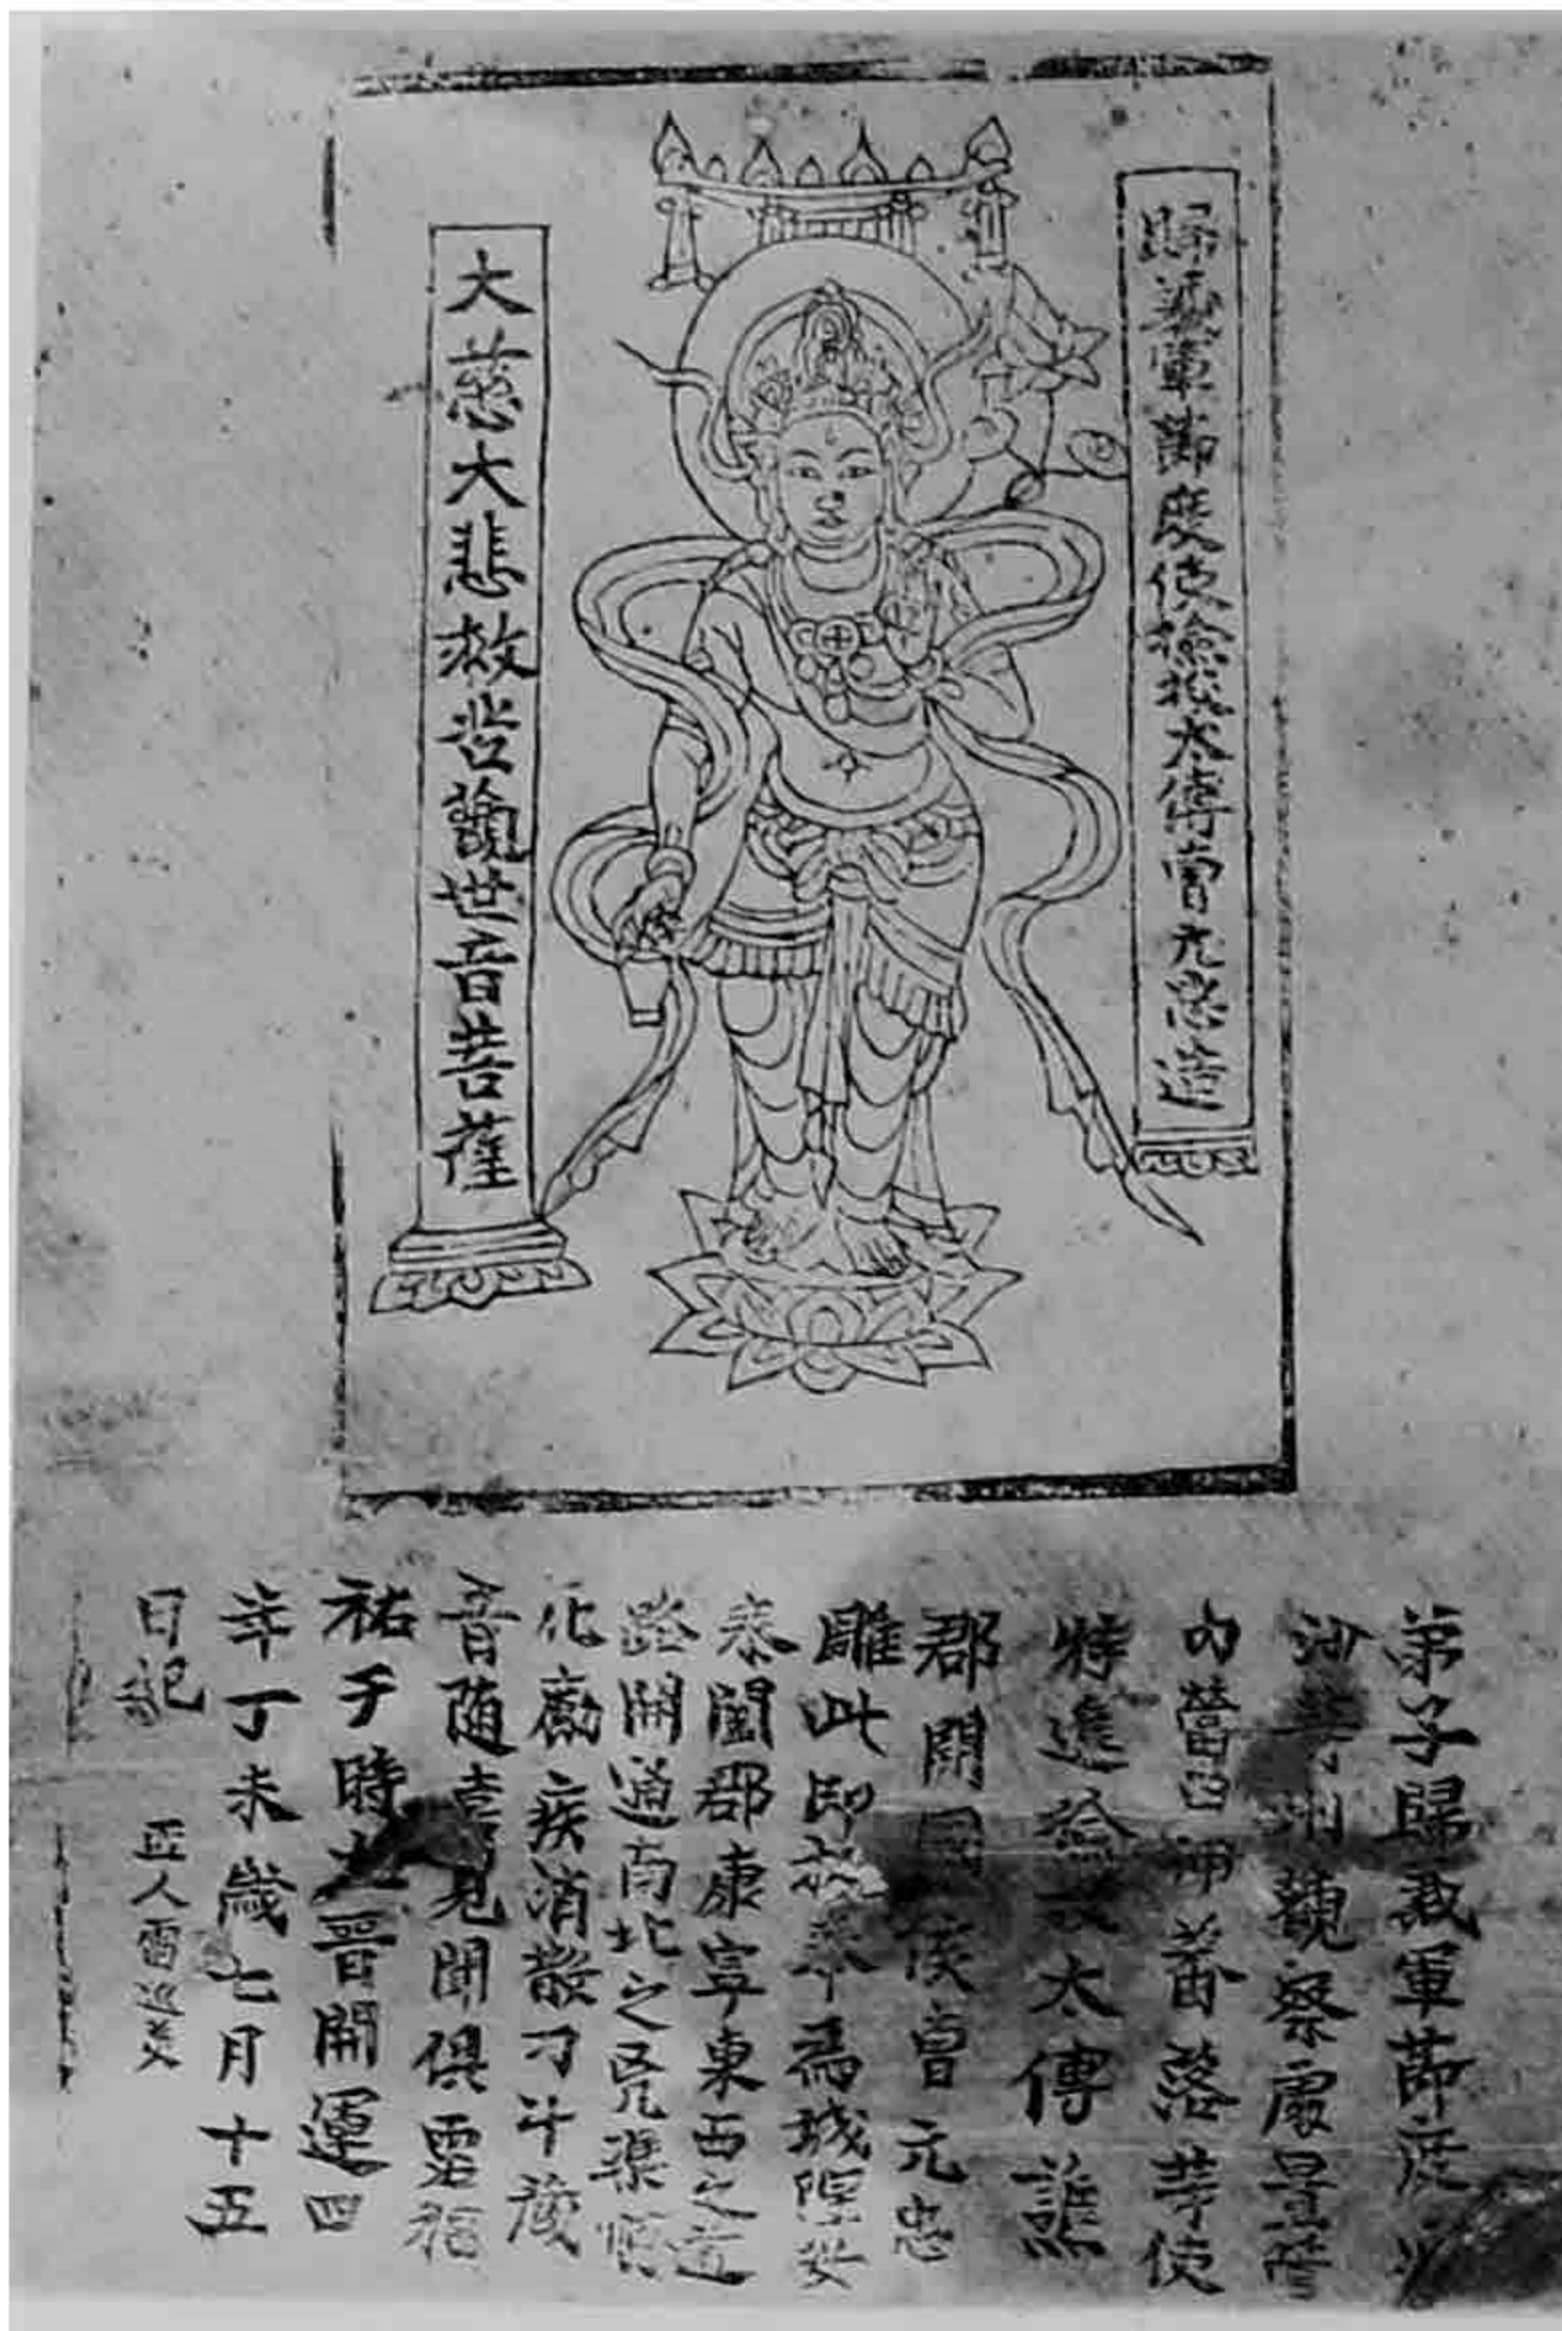 歸義軍節度使檢挍太傅曹元忠造
大慈大悲救苦觀世音菩薩
弟子歸義軍節度瓜
沙等州觀察處置管
內營田押蕃落等使
特進檢挍太傅譙
郡開國侯曹元忠
雕此印板奉爲城隍安
泰闔郡康寧東西之道
路開通南北之兇渠順
化癘疾消散刁斗藏
音随喜見聞俱霑福
祐于時大晉開運四
年丁未歲七月十五
日記 匠人雷延美